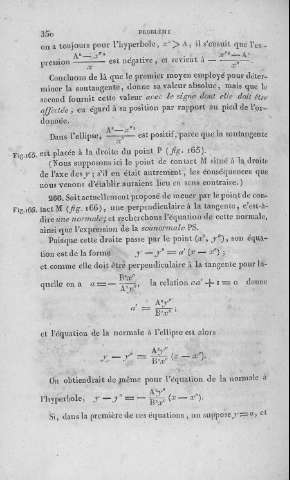 350 PROBLÈME
on a toujours pour l'hyperbole, x' > A, il s'ensuit que l'ex-
pression (A² — x'²)/x' est négative, et revient à — (x'² — A²)/x'.
Concluons de là que le premier moyen employé pour déter-
miner la soutangente, donne sa valeur absolue, mais que le
second fournit cette valeur avec le signe dont elle doit être
affectée, eu égard à sa position par rapport au pied de l'or-
donnée.
Dans l'ellipse, (A² — x'²)/x' est positif, parce que la soutangente
Fig. 165. est placée à la droite du point P (fig. 165).
(Nous supposons ici le point de contact M situé à la droite
de l'axe des y; s'il en était autrement, les conséquences que
nous venons d'établir auraient lieu en sens contraire.)
260. Soit actuellement proposé de mener par le point de con-
Fig. 166. tact M (fig. 166), une perpendiculaire à la tangente, c'est-à-
dire une normale; et recherchons l'équation de cette normale,
ainsi que l'expression de la sounormale PS.
Puisque cette droite passe par le point (x', y'), son équa-
tion est de la forme y — y' = a' (x — x');
et comme elle doit être perpendiculaire à la tangente pour la-
quelle on a a = — B²x'/A²y', la relation aa' + 1 = 0 donne
a' = A²y'/B²x';
et l'équation de la normale à l'ellipse est alors
y — y' = A²y'/B²x' (x — x').
On obtiendrait de même pour l'équation de la normale à
l'hyperbole, y — y' = — A²y'/B²x' (x — x').
Si, dans la première de ces équations, on suppose y = 0, et